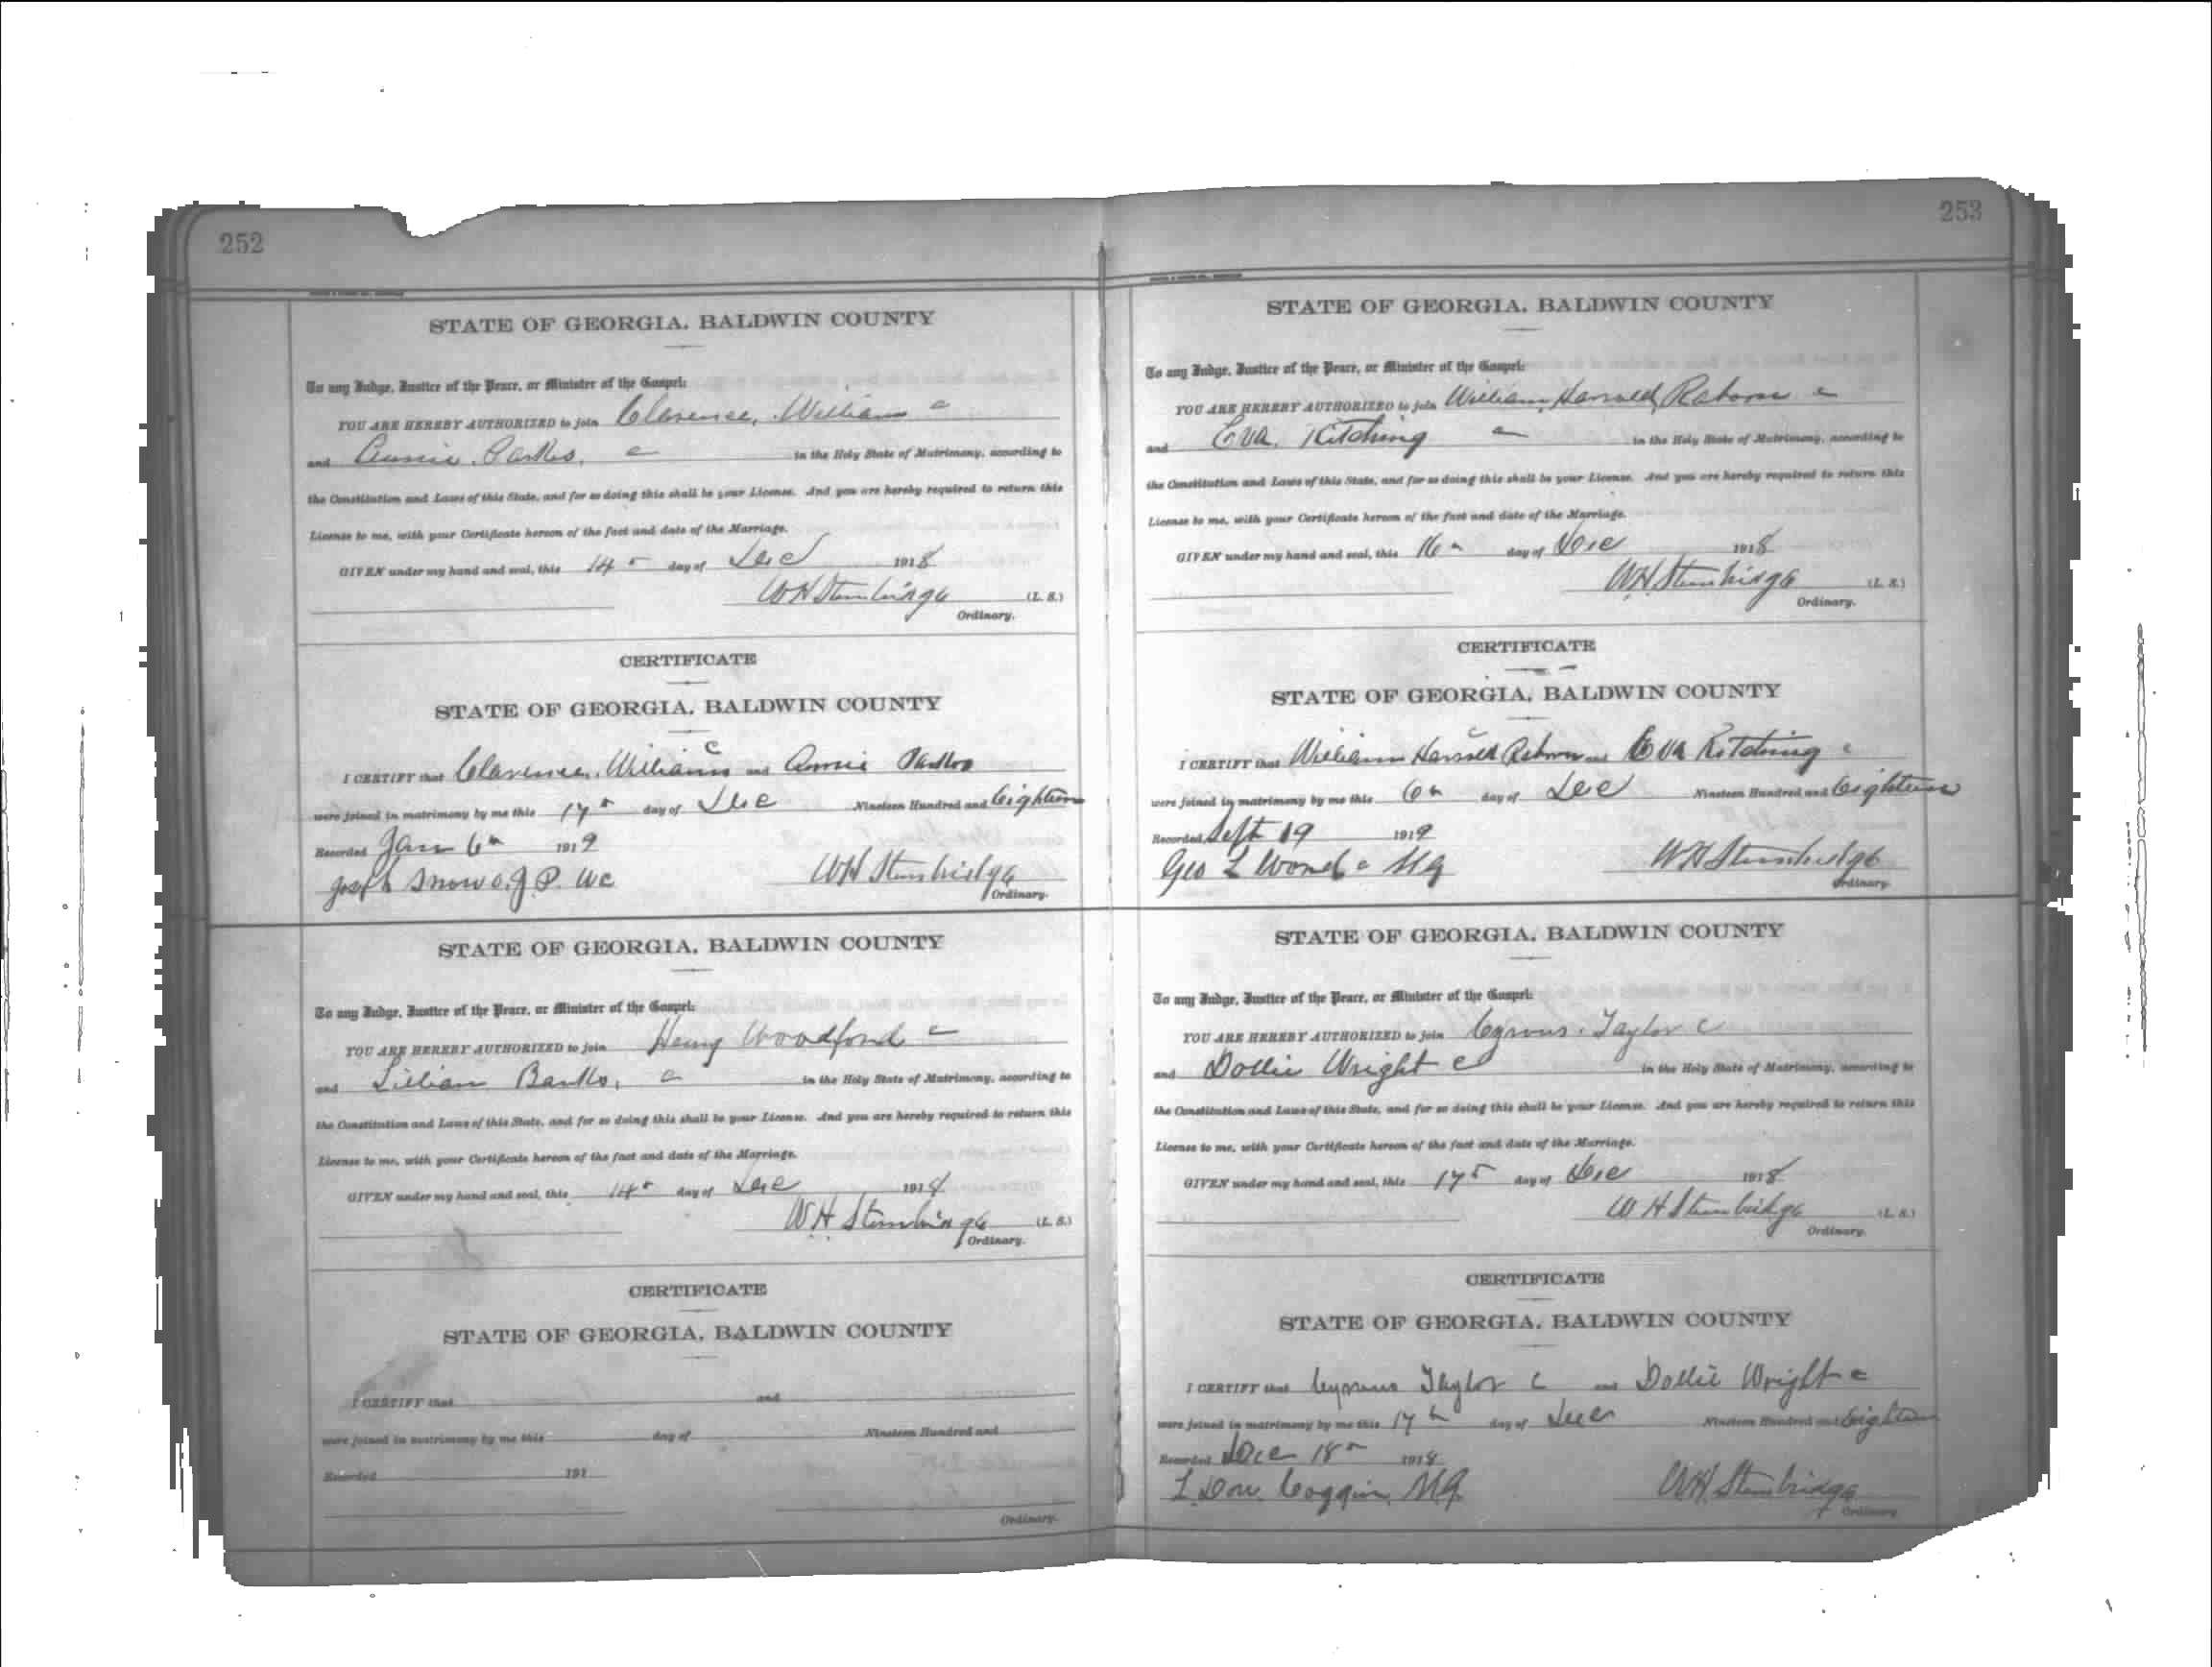 252
STATE OF GEORGIA. BALDWIN COUNTY
To any Judge, Justice of the Peace, or Minister of the Gospel:
YOU ARE HEREBY AUTHORIZED to join Clarence, Williams c
and Annie c in the Holy State of Matrimony, according to
the Constitution and Laws of this State, and for so doing this shall be your License. And you are hereby required to return this
License to me, with your Certificate hereon of the fact and date of the Marriage.
GIVEN under my hand and seal, this 14 day of Dec 1918
WH Stembridge (L. S.)
Ordinary.
CERTIFICATE
STATE OF GEORGIA. BALDWIN COUNTY
c
I CERTIFY that Clarence, Williams and Annie
were joined in matrimony by me this 17 day of Dec Nineteen Hundred and Eighteen
Recorded Jan 6 1919
Joseph J. P. WC WH Stembridge
Ordinary.
STATE OF GEORGIA. BALDWIN COUNTY
To any Judge, Justice of the Peace, or Minister of the Gospel:
YOU ARE HEREBY AUTHORIZED to join Henry Woodford c
and Lillian Banks, c in the Holy State of Matrimony, according to
the Constitution and Laws of this State, and for so doing this shall be your License. And you are hereby required to return this
License to me, with your Certificate hereon of the fact and date of the Marriage.
GIVEN under my hand and seal, this 14 day of Dec 1918
WH Stembridge (L. S.)
Ordinary.
CERTIFICATE
STATE OF GEORGIA. BALDWIN COUNTY
I CERTIFY that and
were joined in matrimony by me this day of Nineteen Hundred and
Recorded 191
Ordinary.
253
STATE OF GEORGIA. BALDWIN COUNTY
To any Judge, Justice of the Peace, or Minister of the Gospel:
YOU ARE HEREBY AUTHORIZED to join William, Harrold, Raborn c
and Eva, Kitching c in the Holy State of Matrimony, according to
the Constitution and Laws of this State, and for so doing this shall be your License. And you are hereby required to return this
License to me, with your Certificate hereon of the fact and date of the Marriage.
GIVEN under my hand and seal, this 16 day of Dec 1918
WH Stembridge (L. S.)
Ordinary.
CERTIFICATE
STATE OF GEORGIA, BALDWIN COUNTY
c
I CERTIFY that William Harrold Raborn and Eva Kitching c
were joined in matrimony by me this 6 day of Dec Nineteen Hundred and Eighteen
Recorded Sept 19 1919
Geo L c MG WH Stembridge
Ordinary
STATE OF GEORGIA. BALDWIN COUNTY
To any Judge, Justice of the Peace, or Minister of the Gospel:
YOU ARE HEREBY AUTHORIZED to join Cyrous. Taylor c
and Dollie Wright c in the Holy State of Matrimony, according to
the Constitution and Laws of this State, and for so doing this shall be your License. And you are hereby required to return this
License to me, with your Certificate hereon of the fact and date of the Marriage.
GIVEN under my hand and seal, this 17 day of Dec 1918
WH Stembridge (L. S.)
Ordinary.
CERTIFICATE
STATE OF GEORGIA. BALDWIN COUNTY
I CERTIFY that Cyrous Taylor c and Dollie Wright c
were joined in matrimony by me this 17 day of Dec Nineteen Hundred and Eighteen
Recorded Dec 18 1918
L. Don. Coggin, MG. WH Stembridge
Ordinary